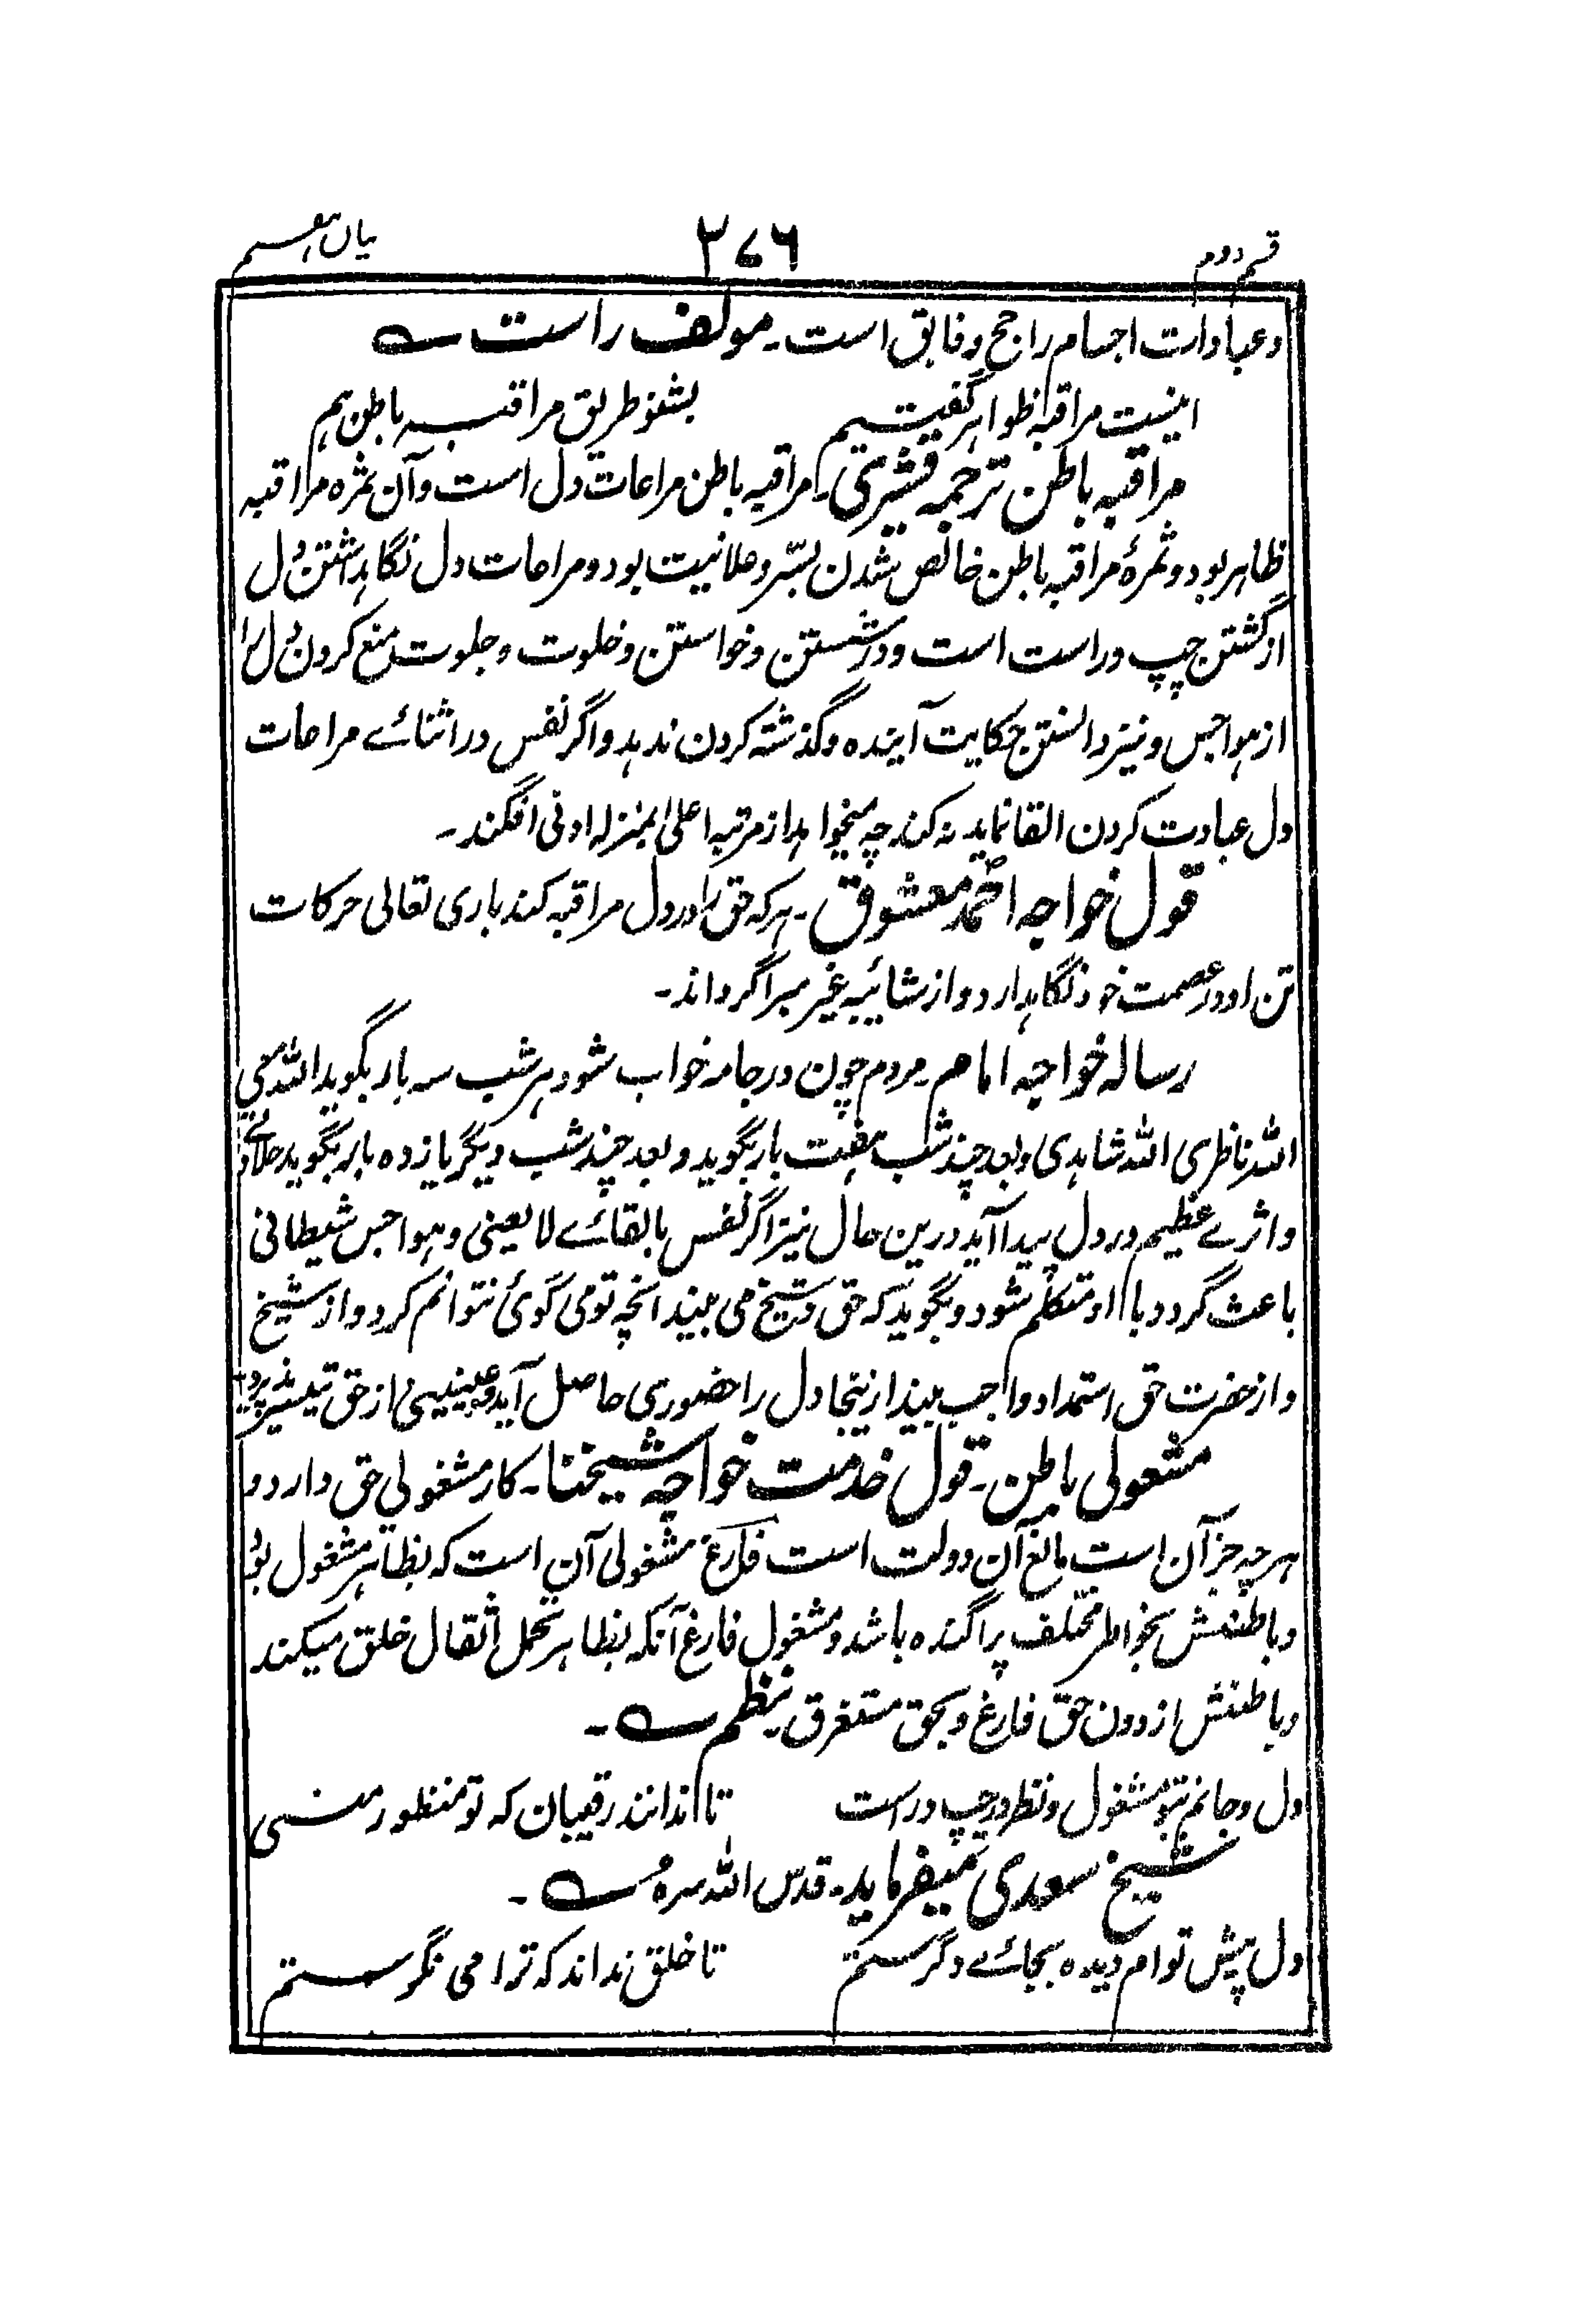 قسم دوم
۲۷۶
بیان ہفتم
وعبادات اجسام راجح وفایق است۔ مولف راست ؎
اینست مراقبہ ظواہر گفتیم بشنو طریق مراقبہ باطن ہم
مراقبہ باطن ترجمہ قشیری۔ مراقبہ باطن مراعات دل است وآن ثمرہ مراقبہ
ظاہر بود وثمرۂ مراقبہ باطن خالص شدن بسّر وعلانیت بود ومراعات دل نگاہداشتن دل
از گشتن چپ وراست است ودر نشستن وخواستن وخلوت وجلوت منع کردن دل را
از ہواجس ونیز دانستن حکایت آیندہ وگذشتہ کردن ندہد واگر نفس در اثنائے مراعات
دل عبادت کردن القا نماید نہ کند چہ میخواہد از مرتبہ اعلیٰ بمنزلہ ادنی افگند۔
قول خواجہ احمد معشوق۔ ہر کہ حق را در دل مراقبہ کند باری تعالی حرکات
تن او در عصمت خود نگاہدارد واز شائبہ غیر مبرا گرداند۔
رسالہ خواجہ امام۔ مردم چون در جامہ خواب شود ہر شب سہ بار بگوید اللہ معی
اللہ ناظری اللہ شاہدی وبعد چند شب ہفت بار بگوید وبعد چند شب دیگر یازدہ بار بگوید حلاوتے
واثرے عظیم در دل پیدا آید درین حال نیز اگر نفس بالقائے لایعنی وہواجس شیطانی
باعث گردد با او متکلم شود وبگوید کہ حق وشیخ می بیند آنچہ تو می گوئی نتوانم کرد واز شیخ
واز حضرت حق استمداد واجب بیند ازینجا دل را حضوری حاصل آید از حق تیسیر پذیرد
مشغولی باطن۔ قول خدمت خواجہ شیخنا۔ کار مشغولی حق دارد و
ہرچہ جز آن است مانع آن دولت است فارغ مشغولی آن است کہ بظاہر مشغول بود
وباطنش بخواطر مختلف پراگندہ باشد ومشغول فارغ آنکہ بظاہر تحمل اثقال خلق میکند
وباطنش از دون حق فارغ وبحق مستغرق۔ نظم ؎۔
دل وجانم بتو مشغول ونظر در چپ وراست تا ندانند رقیبان کہ تو منظور منی
شیخ سعدی میفرماید۔ قدس اللہ سرہ ؎۔
دل پیش توام دیدہ بجائے دگرستم تا خلق نداند کہ ترا می نگرستم